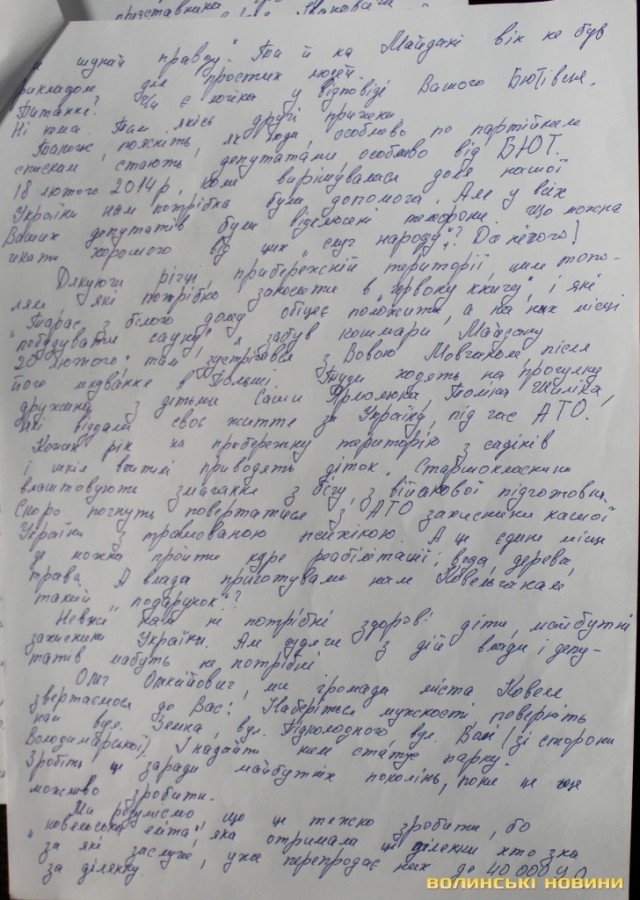 представника Івановича
шукай правду". Та й на Майдані він не був
прикладом для простих людей.
Питання? Чи є логіка у відповіді Вашого Бютівця.
Ні нема. Там якісь другі причини.
Поясніть, як люди, особливо по партійним
спискам стають депутатами, особливо від БЮТ.
18 лютого 2014р, коли вирішувалася доля нашої
України нам потрібна була допомога. Але у всіх
Ваших депутатів були відключені телефони. Що можна
чекати хорошого від цих „слуг народу"? Да нічого!
Дякуючи річці, прибережній території, цим топо-
лям, які потрібно заносити в "Червону книгу", і які
"Тарас з білого дому" обіцяє положити, а на їх місці
побудувати сауну, я забув кошмари Майдану
20 лютого; там зустрічався з Вовою Мовчаком, після
його лікування в Польщі. Туди ходять на прогулку
дружини з дітьми Саші Ярмолюка, Толіка Шиліка,
які віддали своє життя за Україну, під час АТО.
Кожен рік на прибережну територію з садіків
і шкіл вчителі приводять діток. Старшокласники
влаштовують змагання з бігу, з військової підготовки.
Скоро почнуть повертатися з АТО захисники нашої
України з травмованою психікою. А це єдине місце
де можна пройти курс реабілітації: вода, дерева,
трава. А влада приготувала нам Ковельчанам
такий „подарунок"?
Невже нам не потрібні здорові діти, майбутні
захисники України. Але судячи з дій влади і депу-
татів мабуть не потрібні.
Олег , ми громада міста Ковеля
звертаємося до Вас! Наберіться мужності, поверніть
нам вул. Земка, вул. Підхолодного, вул. Ваві (зі сторони
Володимирської). І надайте ним статус парку.
Зробіть це заради майбутніх поколінь, поки це ще
можливо зробити.
Ми розуміємо, що це тяжко зробити, бо
„ковельська еліта", яка отримала ці ділянки хто зна
за які заслуги, уже перепродає них до 40 000 у.о
за ділянку.
ВОЛИНСЬКІ НОВИНИ